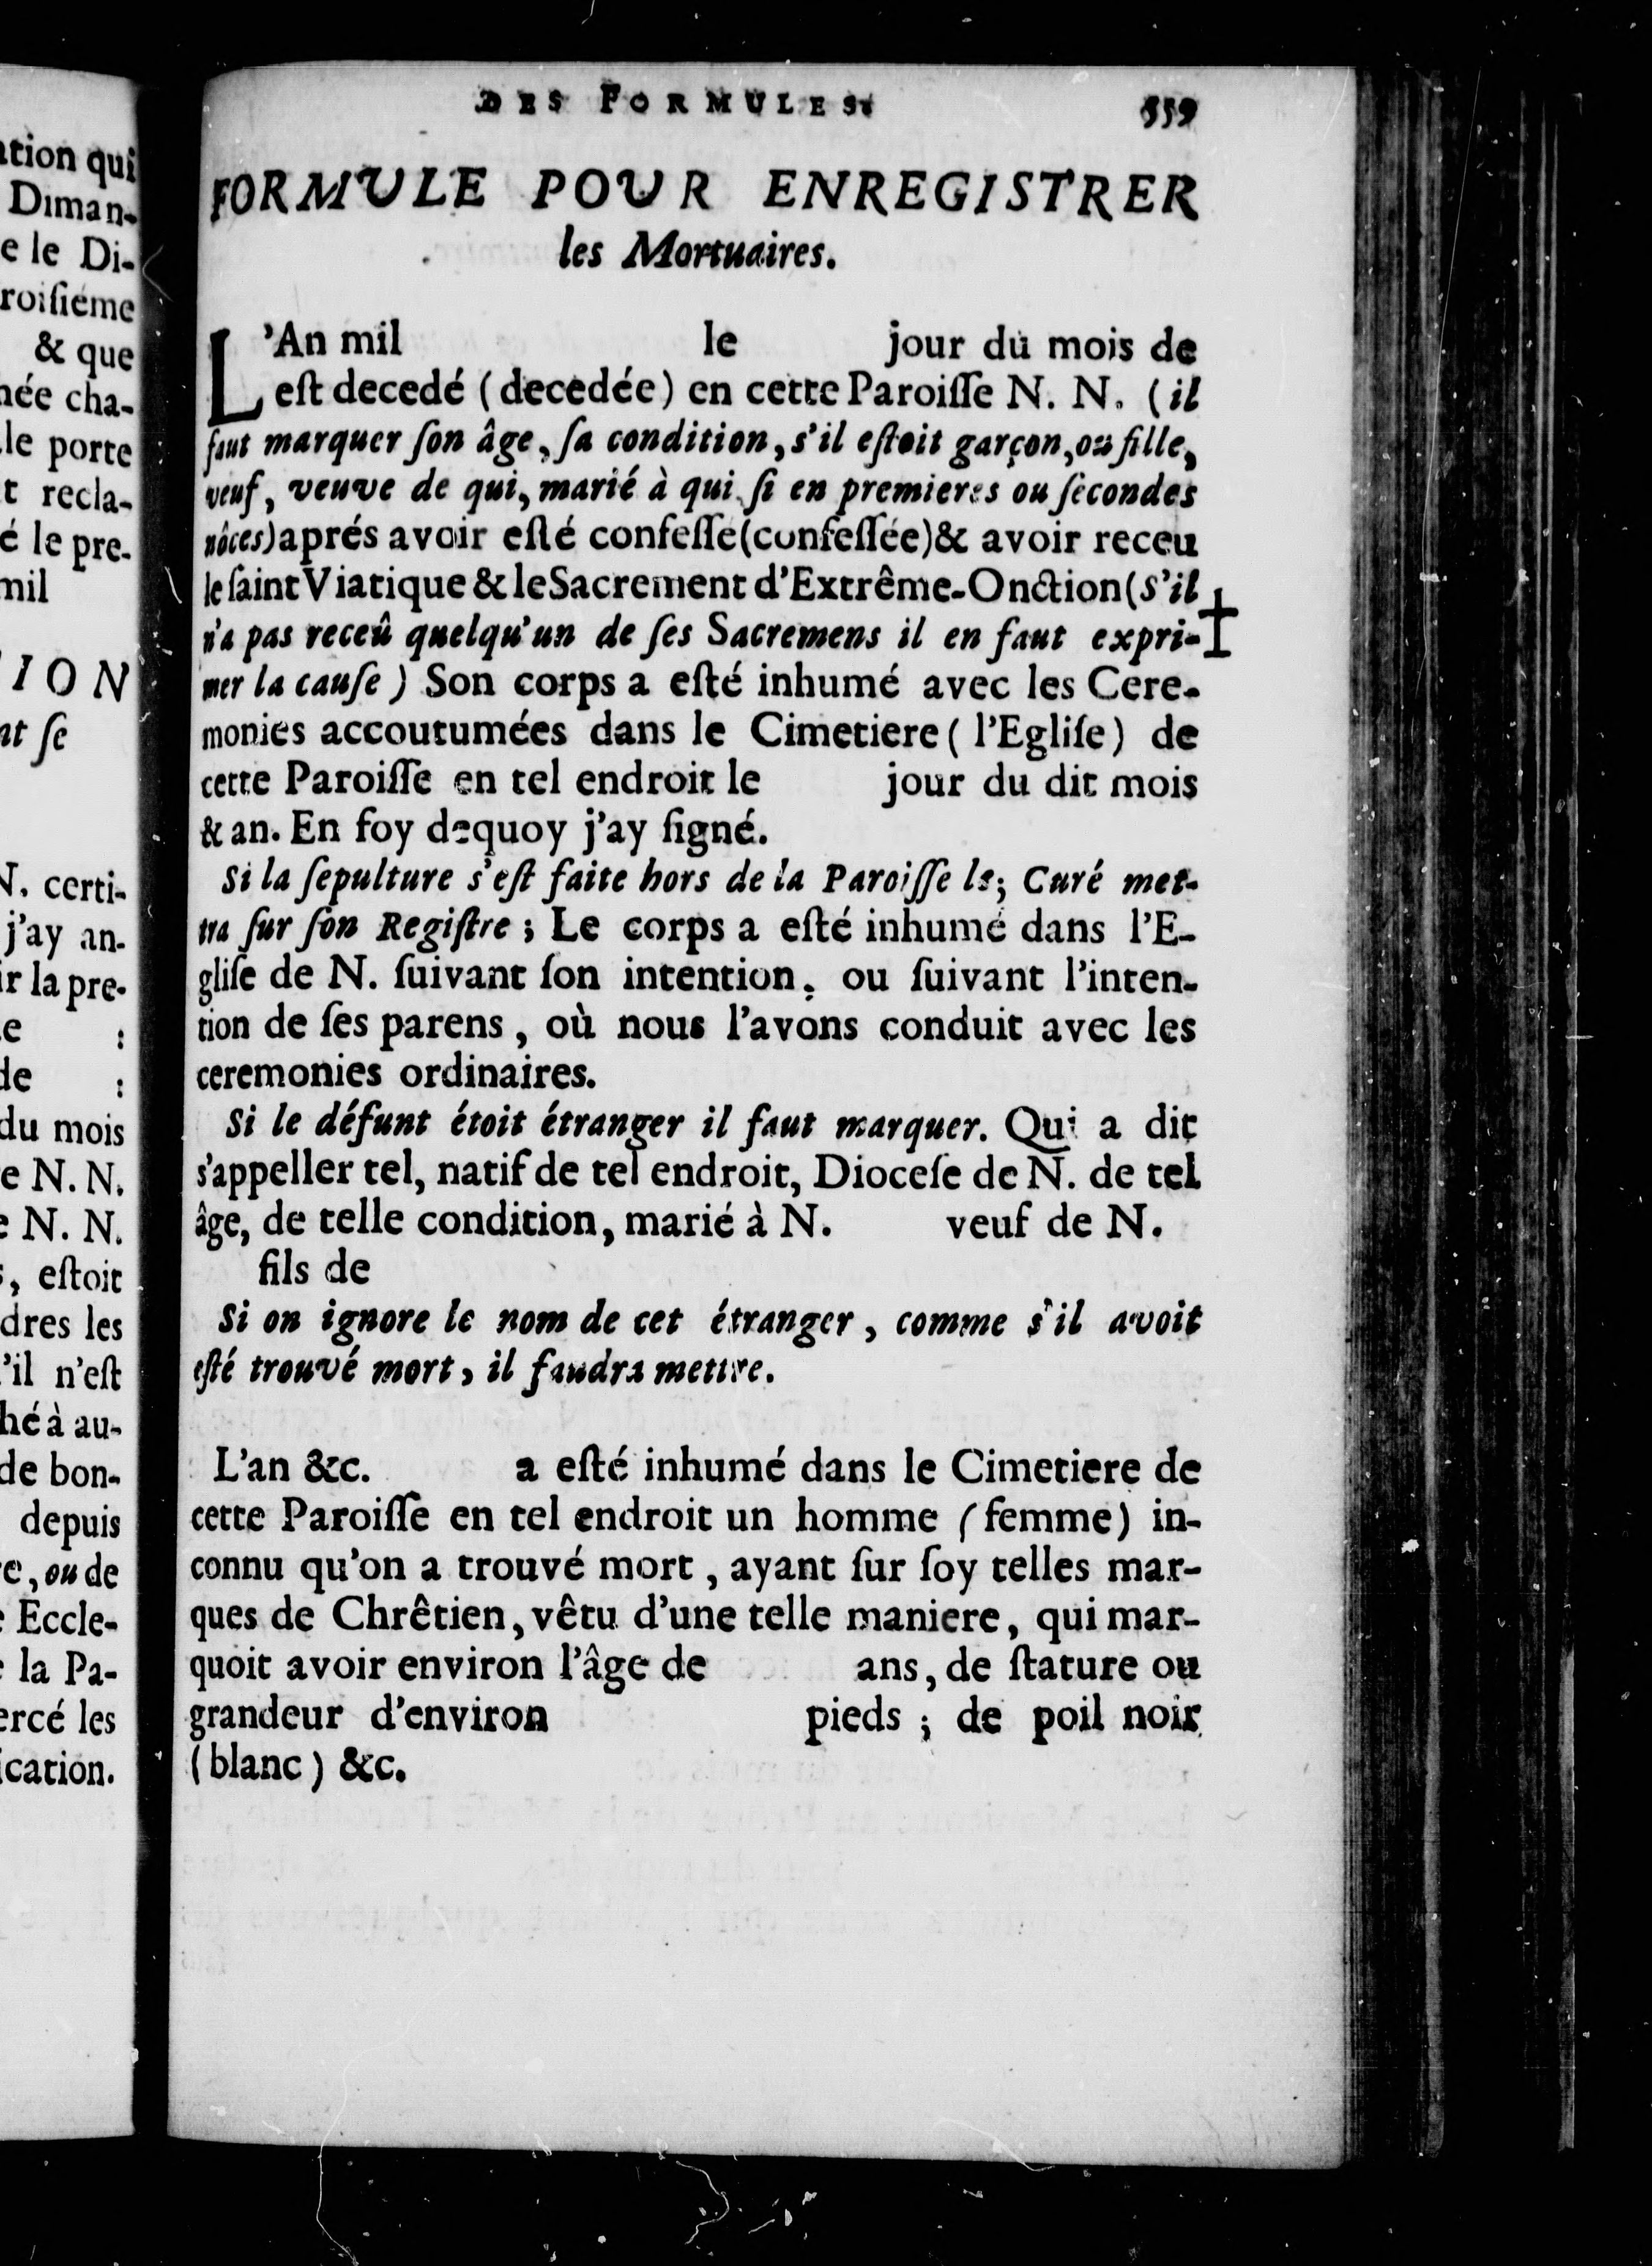 ation qui
Diman-
e le Di-
roiſiéme
& que
née cha-
le porte
t recla-
é le pre-
mil
ION
nt ſe
N. certi-
j'ay an-
ir la pre-
e :
de :
du mois
e N. N.
e N. N.
s, eſtoit
dres les
'il n'eſt
hé à au-
de bon-
depuis
re, ou de
e Eccle-
e la Pa-
ercé les
ication.
DES FORMULES. 559
FORMULE POUR ENREGISTRER
les Mortuaires.
L'An mil le jour du mois de
eſt decedé (decedée) en cette Paroiſſe N. N. (il
faut marquer ſon âge, ſa condition, s'il eſtoit garçon, ou fille,
veuf, veuve de qui, marié à qui, ſi en premieres ou ſecondes
nôces) aprés avoir eſté confeſſé (confeſſée) & avoir receu
le ſaint Viatique & le Sacrement d'Extrême-Onction (S'il
n'a pas receû quelqu'un de ſes Sacremens il en faut expri-
mer la cauſe) Son corps a eſté inhumé avec les Cere-
monies accoutumées dans le Cimetiere (l'Egliſe) de
cette Paroiſſe en tel endroit le jour du dit mois
& an. En foy dequoy j'ay ſigné.
Si la ſepulture s'eſt faite hors de la Paroiſſe le; Curé met-
tra ſur ſon Regiſtre; Le corps a eſté inhumé dans l'E-
gliſe de N. ſuivant ſon intention, ou ſuivant l'inten-
tion de ſes parens, où nous l'avons conduit avec les
ceremonies ordinaires.
Si le défunt étoit étranger il faut marquer. Qui a dit
s'appeller tel, natif de tel endroit, Dioceſe de N. de tel
âge, de telle condition, marié à N. veuf de N.
fils de
Si on ignore le nom de cet étranger, comme s'il avoit
eſté trouvé mort, il faudra mettre.
L'an &c. a eſté inhumé dans le Cimetiere de
cette Paroiſſe en tel endroit un homme (femme) in-
connu qu'on a trouvé mort, ayant ſur ſoy telles mar-
ques de Chrêtien, vêtu d'une telle maniere, qui mar-
quoit avoir environ l'âge de ans, de ſtature ou
grandeur d'environ pieds; de poil noir
(blanc) &c.